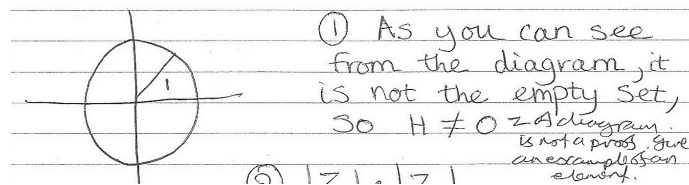 ① As you can see
from the diagram, it
is not the empty set,
So H ≠ 0
A diagram
is not a proof. Give
an example of an
element.
1
② |Z| |Z|